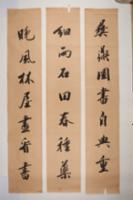 彝鼎圖書自典重
細雨石田春種藥
晚風林屋畫看書